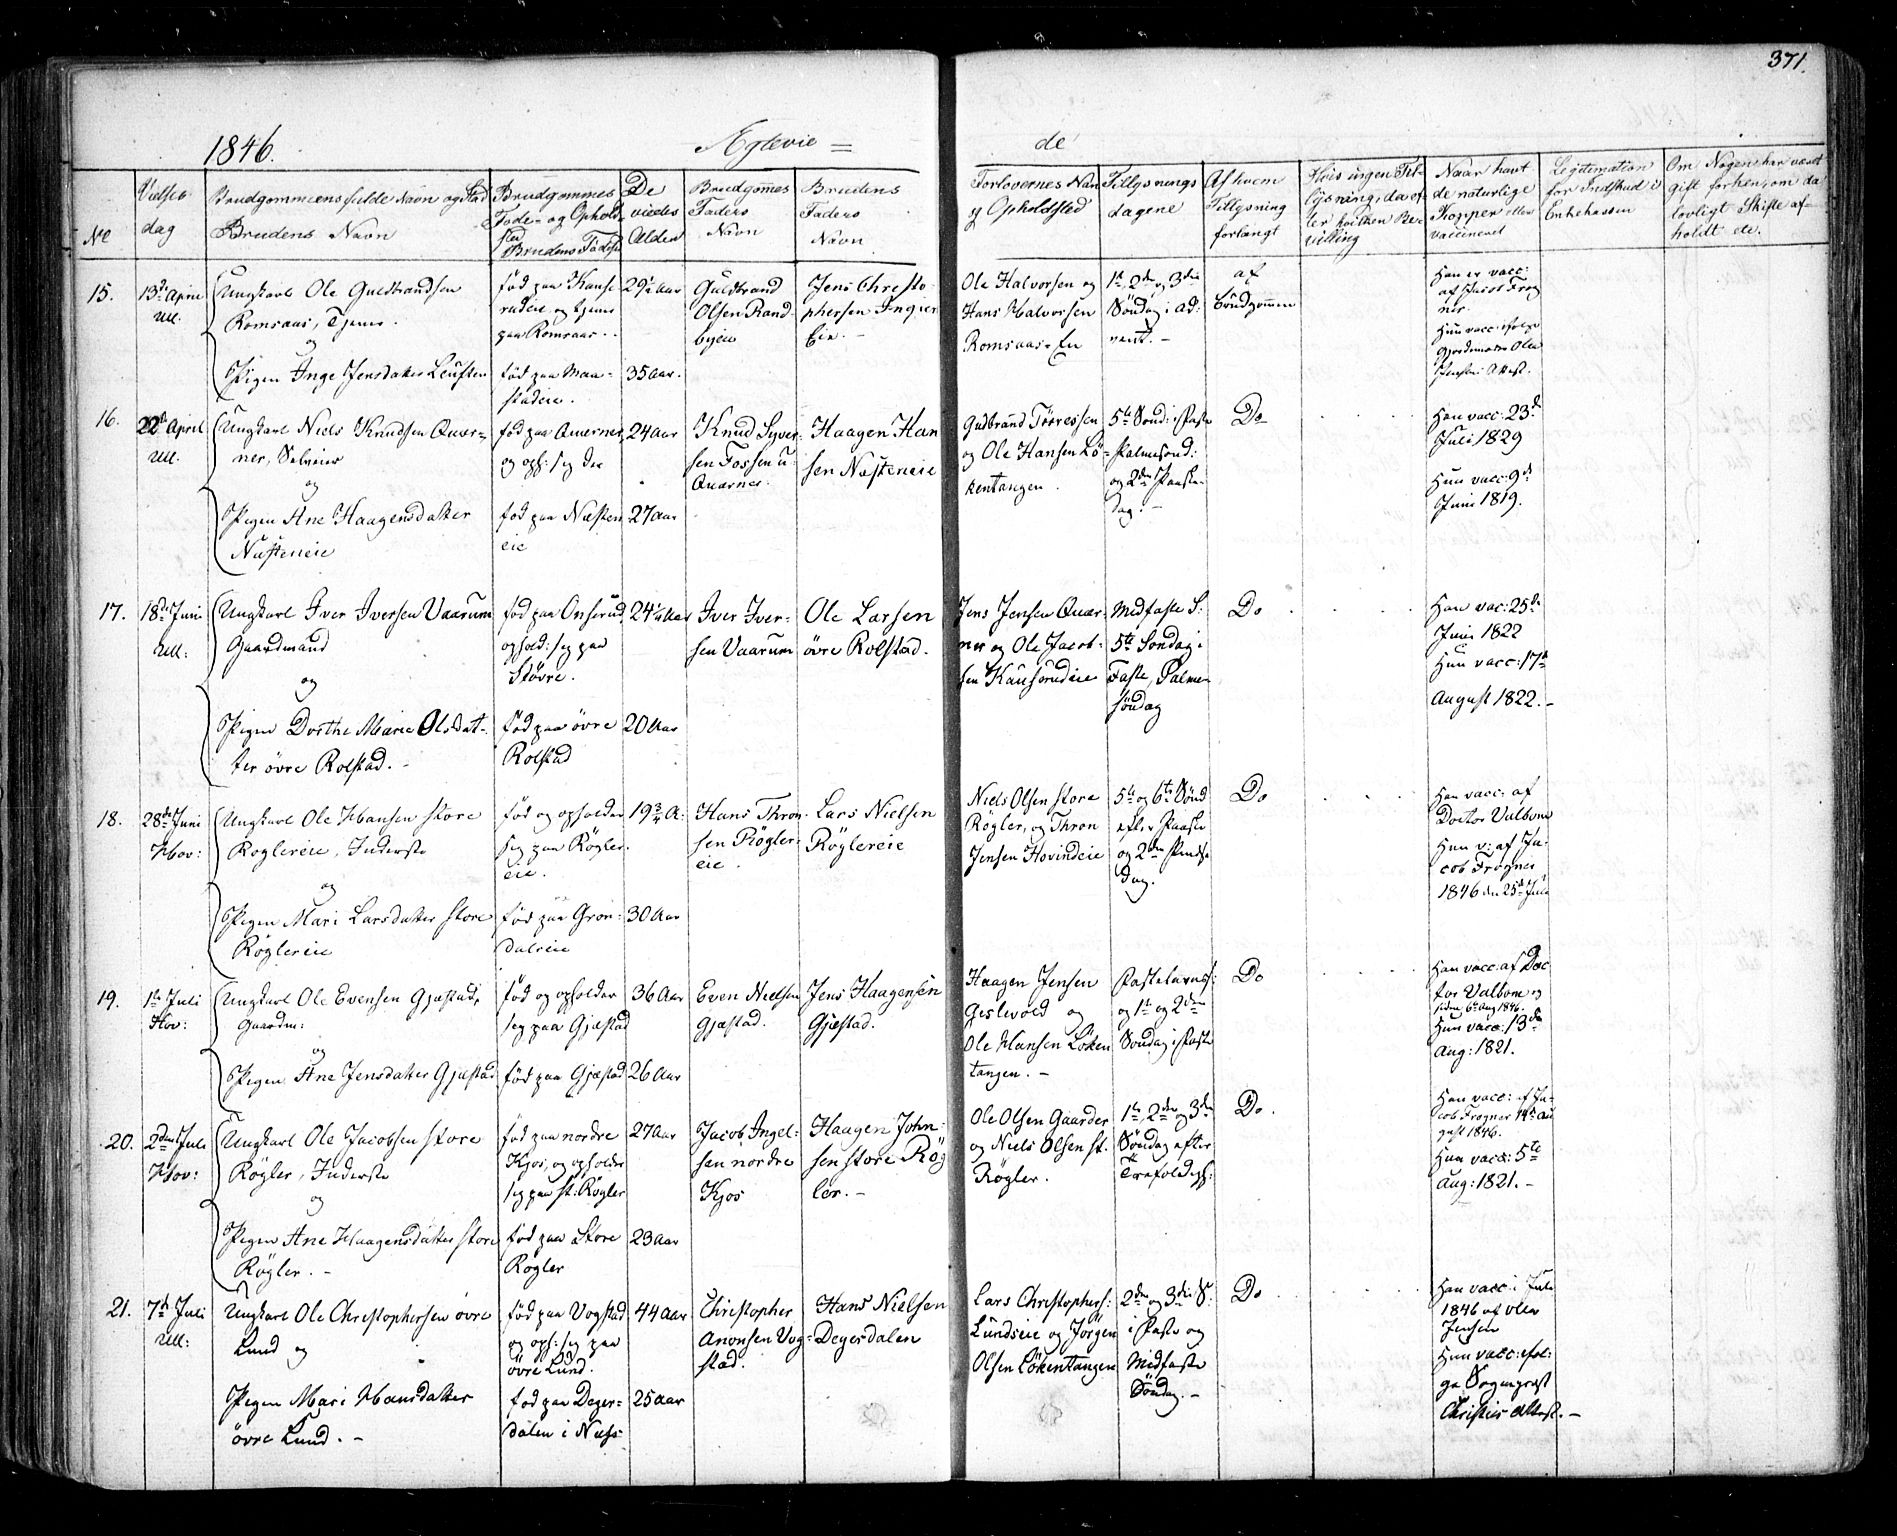 371.
1846.
Ægtevie =
de
No
Vielses
dag
Brudgommens fulde Navn og Stad
Brudens Navn
Brudgommes
Føde- og Ophold
sted
Brudens Fødest
De
viedes
Alder
Brudgoṁes
Faders
Navn
Brudens
Faders
Navn
Forlovernes Nav
og Opholdsted
Tillysnings
dagene
Af hvem
Tillysning
forlangt
Hvis ingen Til-
lysning, da ef-
ter hvilken Be-
villing
Naar havt
de naturlige
Kopper eller
vaccineret
Legitimation
for Indskud i
Enkekassen
Om Nogen har været
gift forhen, om da
lovligt Skifte af-
holdt de.
15.
13de April
Ull.
Ungkarl Ole Guldbrandsen
Romsaas, Tjener.
og
Pigen Inge Jensdatter Leusten
født paa Kause-
rudeie, og tjener
paa Romsaas.
født paa Maa-
stadeie.
29½ Aar
35 Aar.
Guldbrand
Olsen Rand-
byeie
Jens Christo
phersen Ingier
Eie. -
Ole Halvorsen og
Hans Halvorsen
Romsaas-Eie
1st, 2den og 3die
Søndag i Ad:
vent. -
af
Brudgommen
Han er vacc:
af Jacob Frog
ner.
Hun vacc: ifølge
Gjordemoder Olea
Jensens Attest.
16.
22de April
Ull.
Ungkarl Niels Knudsen Quær-
ner, Selveier
og
Pigen Ane Haagensdatter
Næsteneie
født paa Quærner,
og oph: sig der
født paa Næsten
eie
24 Aar
27 Aar
Knud Syver-
sen Fossen u:
Quærner.
Haagen Han
sen Næsteneie
Gudbrand Torresen
og Ole Hansen Lø-
kentangen.
5te Sønd: i Faste
Palmesønd:
og 2den Paaske-
dag. -
Do
Han vacc: 23de
Juli 1829
Hun vacc: 9de
Juni 1819.
17.
18de Juni
Ull:
Ungkarl Iver Iversen Vaarum
Gaardmand
og
Pigen Dorthe Marie Olsdat-
ter øvre Rolstad. -
født paa Onsrud,
ophold: sig paa
Støvre.
født paa øvre
Rolstad
24¼ Aar
20 Aar
Iver Iver-
sen Vaarum
Ole Larsen
øvre Rolstad.
Jens Jensen Quær-
ner og Ole Jacob-
sen Kauserudeie
Midfaste S:
5te Søndag i
Faste, Palme-
søndag
Do
Han vac: 25de
Juni 1822
Hun vacc: 17de
August 1822. -
18.
28de Juni
Hov:
Ungkarl Ole Hansen store
Røglereie, Inderste
og
Pigen Mari Larsdatter store
Røglereie
født og opholder
sig paa Røgler-
eie.
født paa Grøn-
dalseie
19¾ A:
30 Aar
Hans Thron-
sen Røgler-
eie.
Lars Nielsen
Røglereie
Niels Olsen store
Røgler, og Thron
Jensen Hovindeie
5te og 6te Sønd
efter Paaske
og 2den Pindse
dag.
Do
Han vacc: af
Doctor Valbom
Hun v: af Ja-
cob Frogner
1846 den 25de Juli
19.
1ste Juli
Hov:
Ungkarl Ole Evensen Gjæstad,
Gaardm:
og
Pigen Ane Jensdatter Gjæstad
født og opholder
sig paa Gjæstad
født paa Gjæstad
36 Aar
26 Aar
Even Nielsen
Gjæstad.
Jens Haagensen
Gjæstad.
Haagen Jensen
Gislevold og
Ole Hansen Løken
tangen. -
Fastelavns:
og 1st og 2den
Søndag i Faste
Do
Han vacc: af Doc
tor Valbom og
siden 6te Aug 1846.
Hun vacc: 13de
Aug: 1821.
20.
2den Juli
Hov:
Ungkarl Ole Jacobsen store
Røgler, Inderste
og
Pigen Ane Haagensdatter store
Røgler. -
født paa nordre
Kjos, og opholder
sig paa st: Røgler
født paa Store
Røgler
27 Aar
23 Aar
Jacob Ingel-
sen nordre
Kjos
Haagen John-
sen store Røg
ler. -
Ole Olsen Gaarder
og Niels Olsen st.
Røgler.
1ste, 2den og 3die
Søndag efter
Trefoldigh:
Do.
Han vacc: af Ja-
cob Frogner 14de Au
gust 1846.
Hun vacc: 5te
Aug: 1821. -
21.
7de Juli
Ull:
Ungkarl Ole Christophersen øvre
Lund og
Pigen Mari Hansdatter
øvre Lund. -
født paa Vogstad
og oph: sig paa
øvre Lund.
født paa Deger-
dalen i Næss-
44 Aar
25 Aar
Christopher
Anonsen Vog-
stad.
Hans Nielsen
Degerdalen
Lars Christophers:
Lundseie og Jørgen
Olsen Løkentangen
2den og 3die S:
i Faste og
Midfaste
Søndag. -
Do
Han vacc: i Juli
1846 af Olea
Jensen
Hun vacc: iføl-
ge Sogneprest
Christies Attest. -